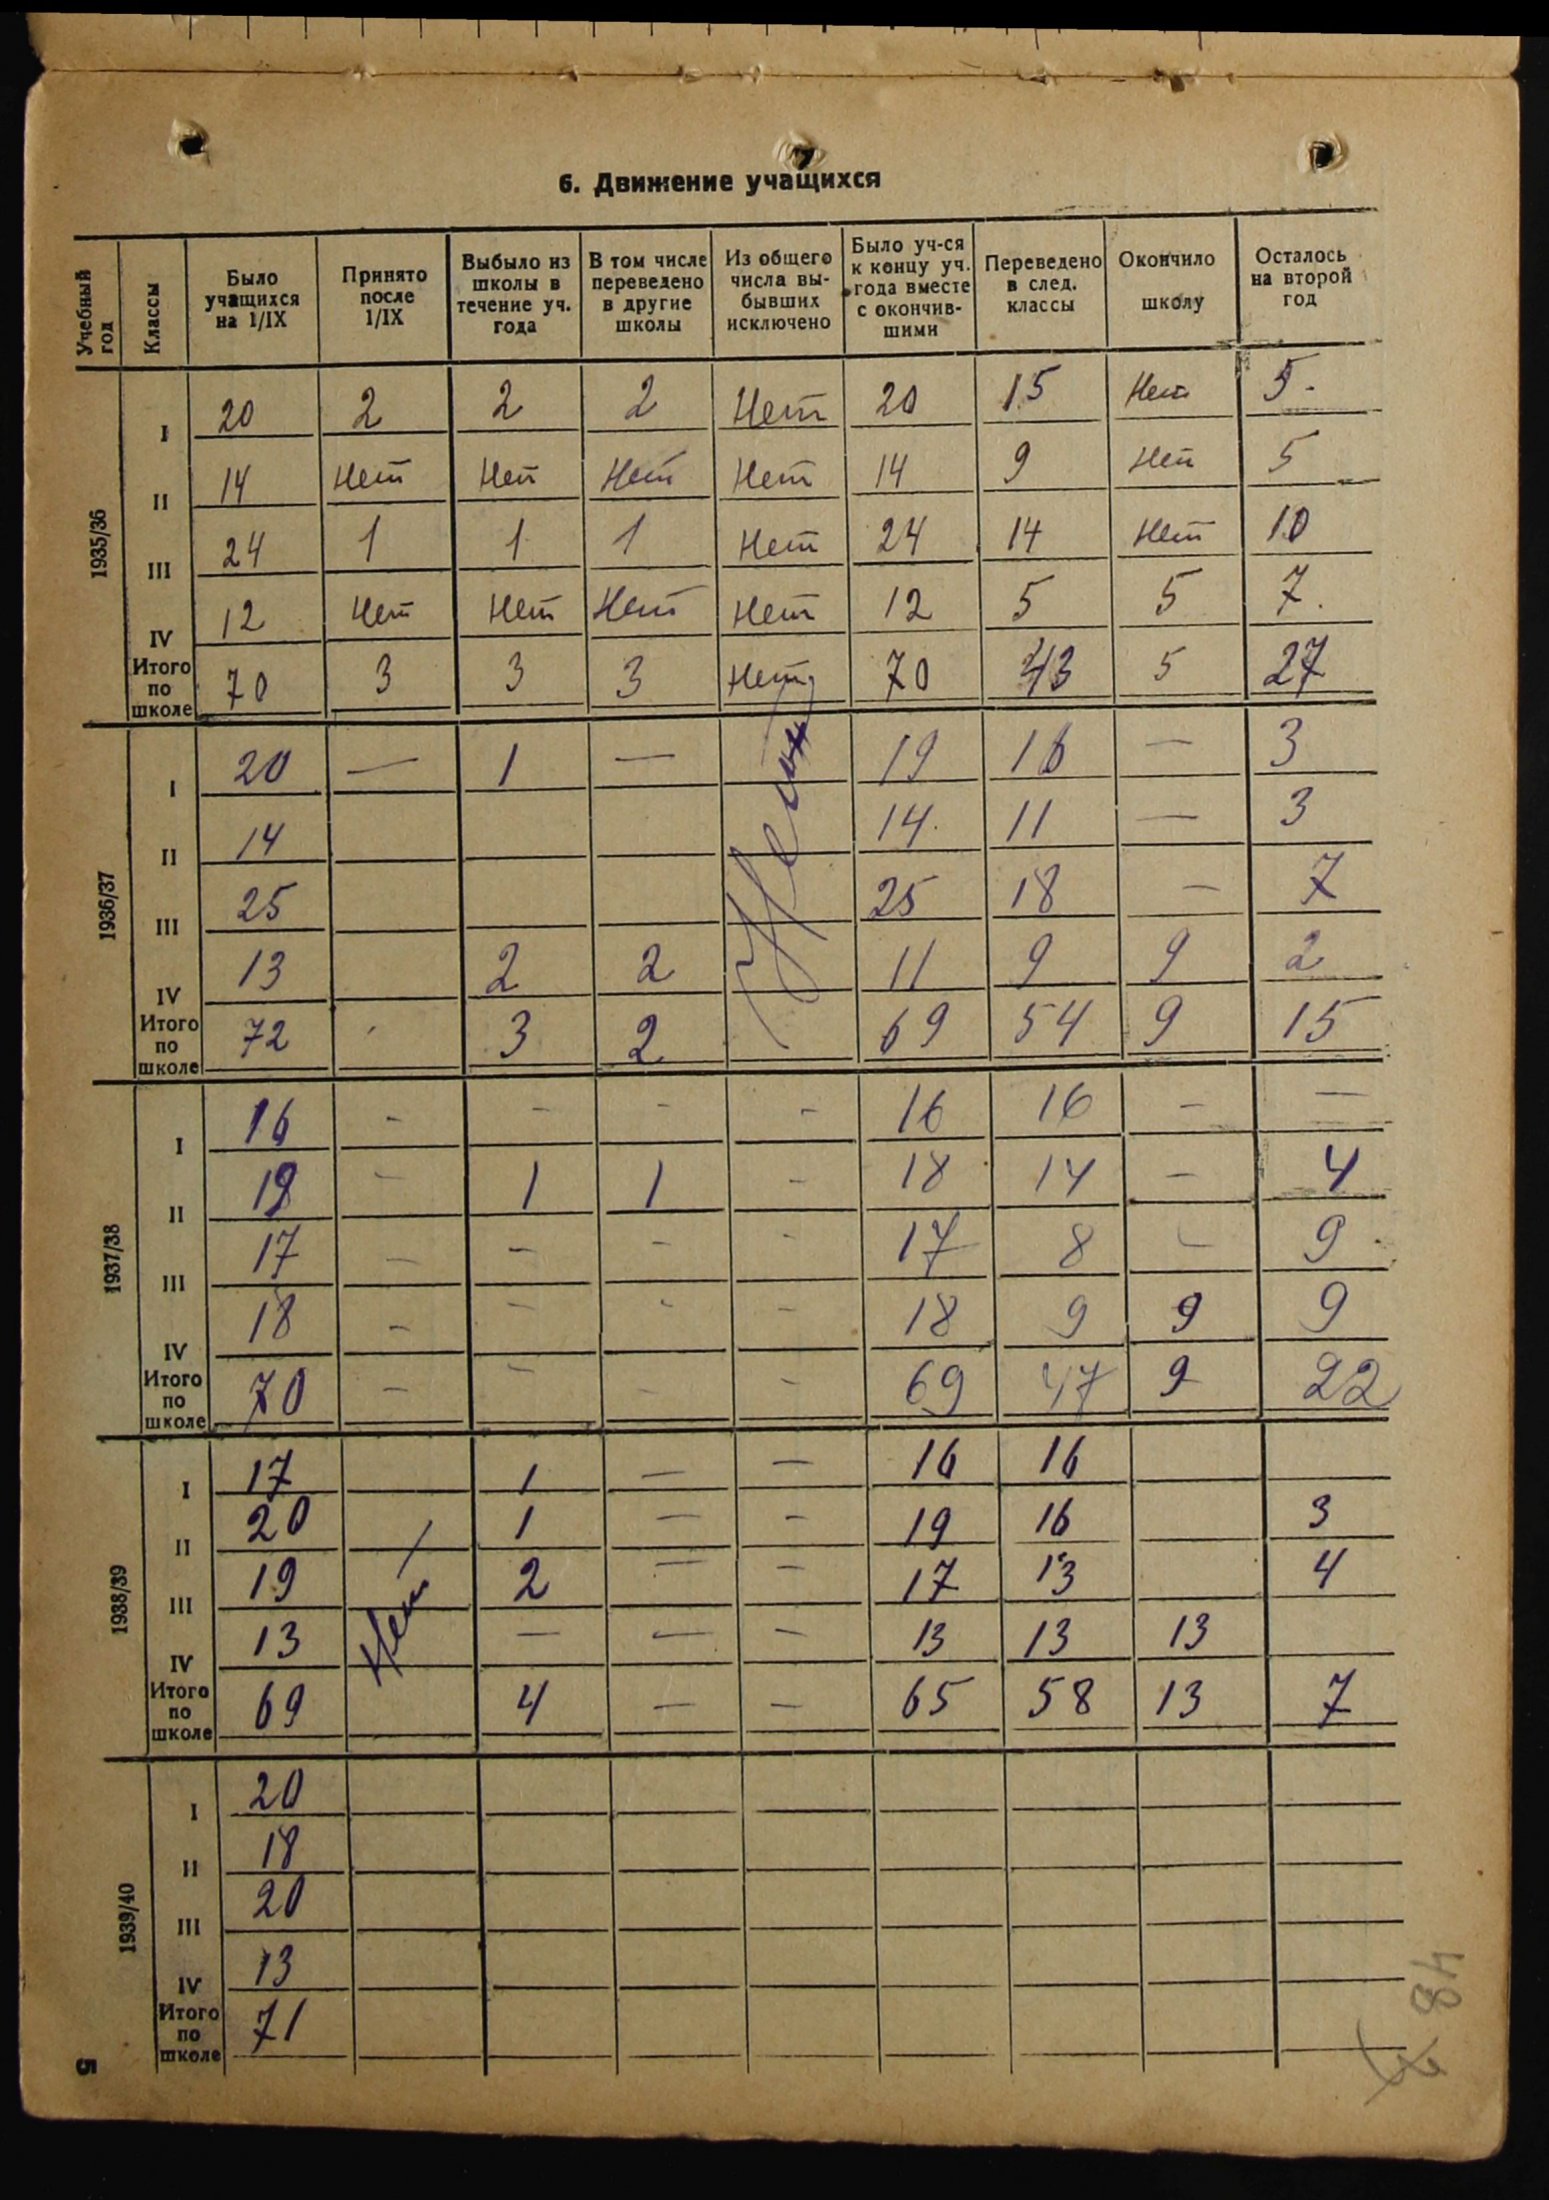 6. Движение учащихся
Учебный год | Классы | Было учащихся на 1/IX | Принято после 1/IX | Выбыло из школы в течение уч. года | В том числе переведено в другие школы | Из общего числа выбывших исключено | Было уч-ся к концу уч. года вместе с окончившими | Переведено в след. классы | Окончило школу | Осталось на второй год
1935/36
I | 20 | 2 | 2 | 2 | Нет | 20 | 15 | Нет | 5
II | 14 | Нет | Нет | Нет | Нет | 14 | 9 | Нет | 5
III | 24 | 1 | 1 | 1 | Нет | 24 | 14 | Нет | 10
IV | 12 | Нет | Нет | Нет | Нет | 12 | 5 | 5 | 7
Итого по школе | 70 | 3 | 3 | 3 | Нет | 70 | 43 | 5 | 27
1936/37
I | 20 | — | 1 | — | Нет | 19 | 16 | — | 3
II | 14 | | | | | 14 | 11 | — | 3
III | 25 | | | | | 25 | 18 | — | 7
IV | 13 | | 2 | 2 | | 11 | 9 | 9 | 2
Итого по школе | 72 | | 3 | 2 | | 69 | 54 | 9 | 15
1937/38
I | 16 | - | - | - | - | 16 | 16 | - | —
II | 19 | - | 1 | 1 | - | 18 | 14 | - | 4
III | 17 | - | - | - | - | 17 | 8 | - | 9
IV | 18 | - | - | - | - | 18 | 9 | 9 | 9
Итого по школе | 70 | - | - | - | - | 69 | 47 | 9 | 22
1938/39
I | 17 | Нет | 1 | — | — | 16 | 16 | |
II | 20 | | 1 | — | - | 19 | 16 | | 3
III | 19 | | 2 | — | - | 17 | 13 | | 4
IV | 13 | | — | — | - | 13 | 13 | 13 |
Итого по школе | 69 | | 4 | — | - | 65 | 58 | 13 | 7
1939/40
I | 20
II | 18
III | 20
IV | 13
Итого по школе | 71
5
48